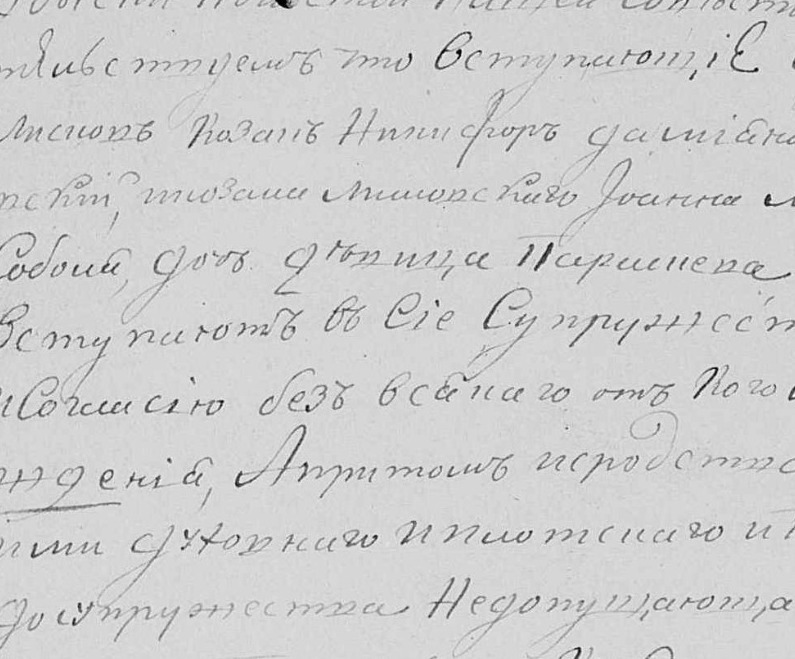 тельствуемъ что вступающіе
козакъ Никифоръ даміано
скій, икозака Іоанна
Собою, дочь дѣвица Параскева
Вступаютъ въ Сіе Супружест
иСогласію безъ всякаго отъ кого
жденія, Апритомъ иродства
ими духовнаго иплотскаго и
досупружества Недопущающа